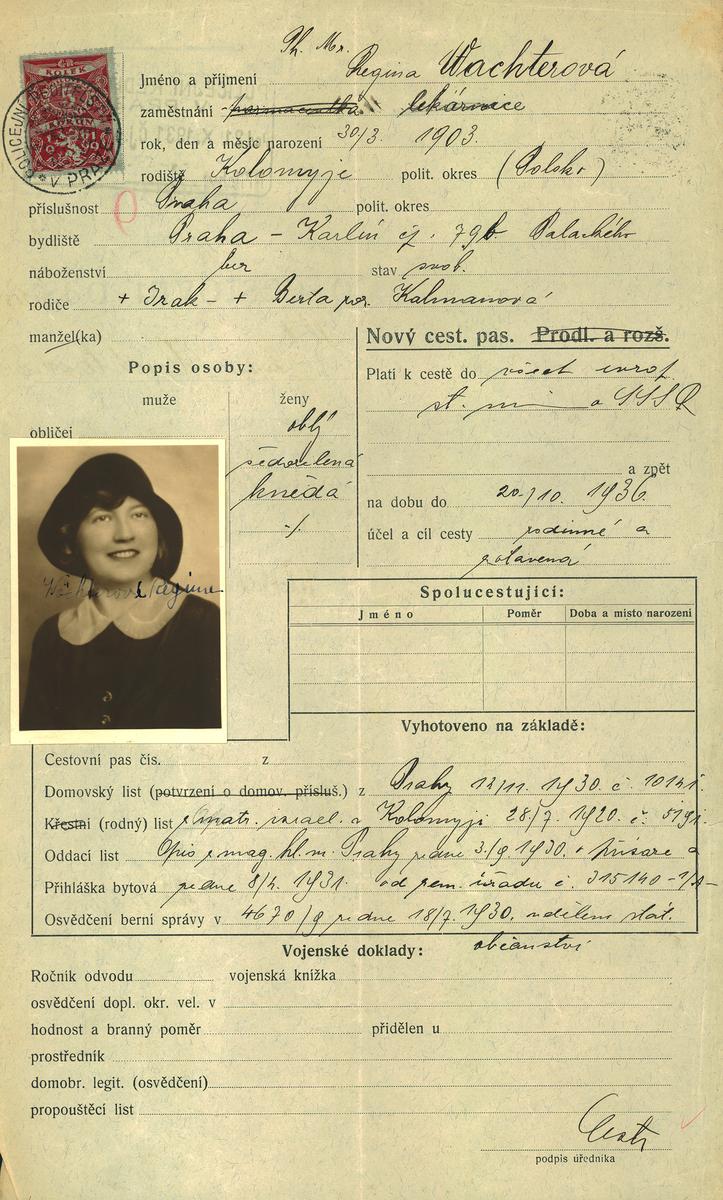 Ph. Mr.
Jméno a příjmení Regina Wachterová
zaměstnání lékárnice
rok, den a měsíc narození 30/3. 1903.
rodiště Kolomyje polit. okres (Polsko)
příslušnost Praha polit. okres
bydliště Praha - Karlín čj. 796. Palackého
náboženství bez stav svob.
rodiče + Izak - + Berta roz. Kalmanová
manžel(ka)
Nový cest. pas. Prodl. a rozš.
Popis osoby:
Platí k cestě do všech evrop.
muže ženy
st. mi o SSSR
obličej oblý
šedozelená
a zpět
hnědá
na dobu do 20./10. 1936.
-/.
účel a cíl cesty rodinné a
zotavená
Wachterová Regina
Spolucestující:
Jméno Poměr Doba a místo narození
Vyhotoveno na základě:
Cestovní pas čís. z
Domovský list (potvrzení o domov. přísluš.) z Prahy 12/11. 1930. č. 10141.
Křestní (rodný) list matr. israel. v Kolomyji 28/7. 1920. č. 5191.
Oddací list Opis mag. hl. m. Prahy ze dne 3./9. 1930. o přísaze a
Přihláška bytová ze dne 8/4. 1931. od zem. úřadu č. 315140
Osvědčení berní správy v 4670/9 ze dne 18/7. 1930. udělení stát.
občanství
Vojenské doklady:
Ročník odvodu vojenská knížka
osvědčení dopl. okr. vel. v
hodnost a branný poměr přidělen u
prostředník
domobr. legit. (osvědčení)
propouštěcí list
podpis úředníka